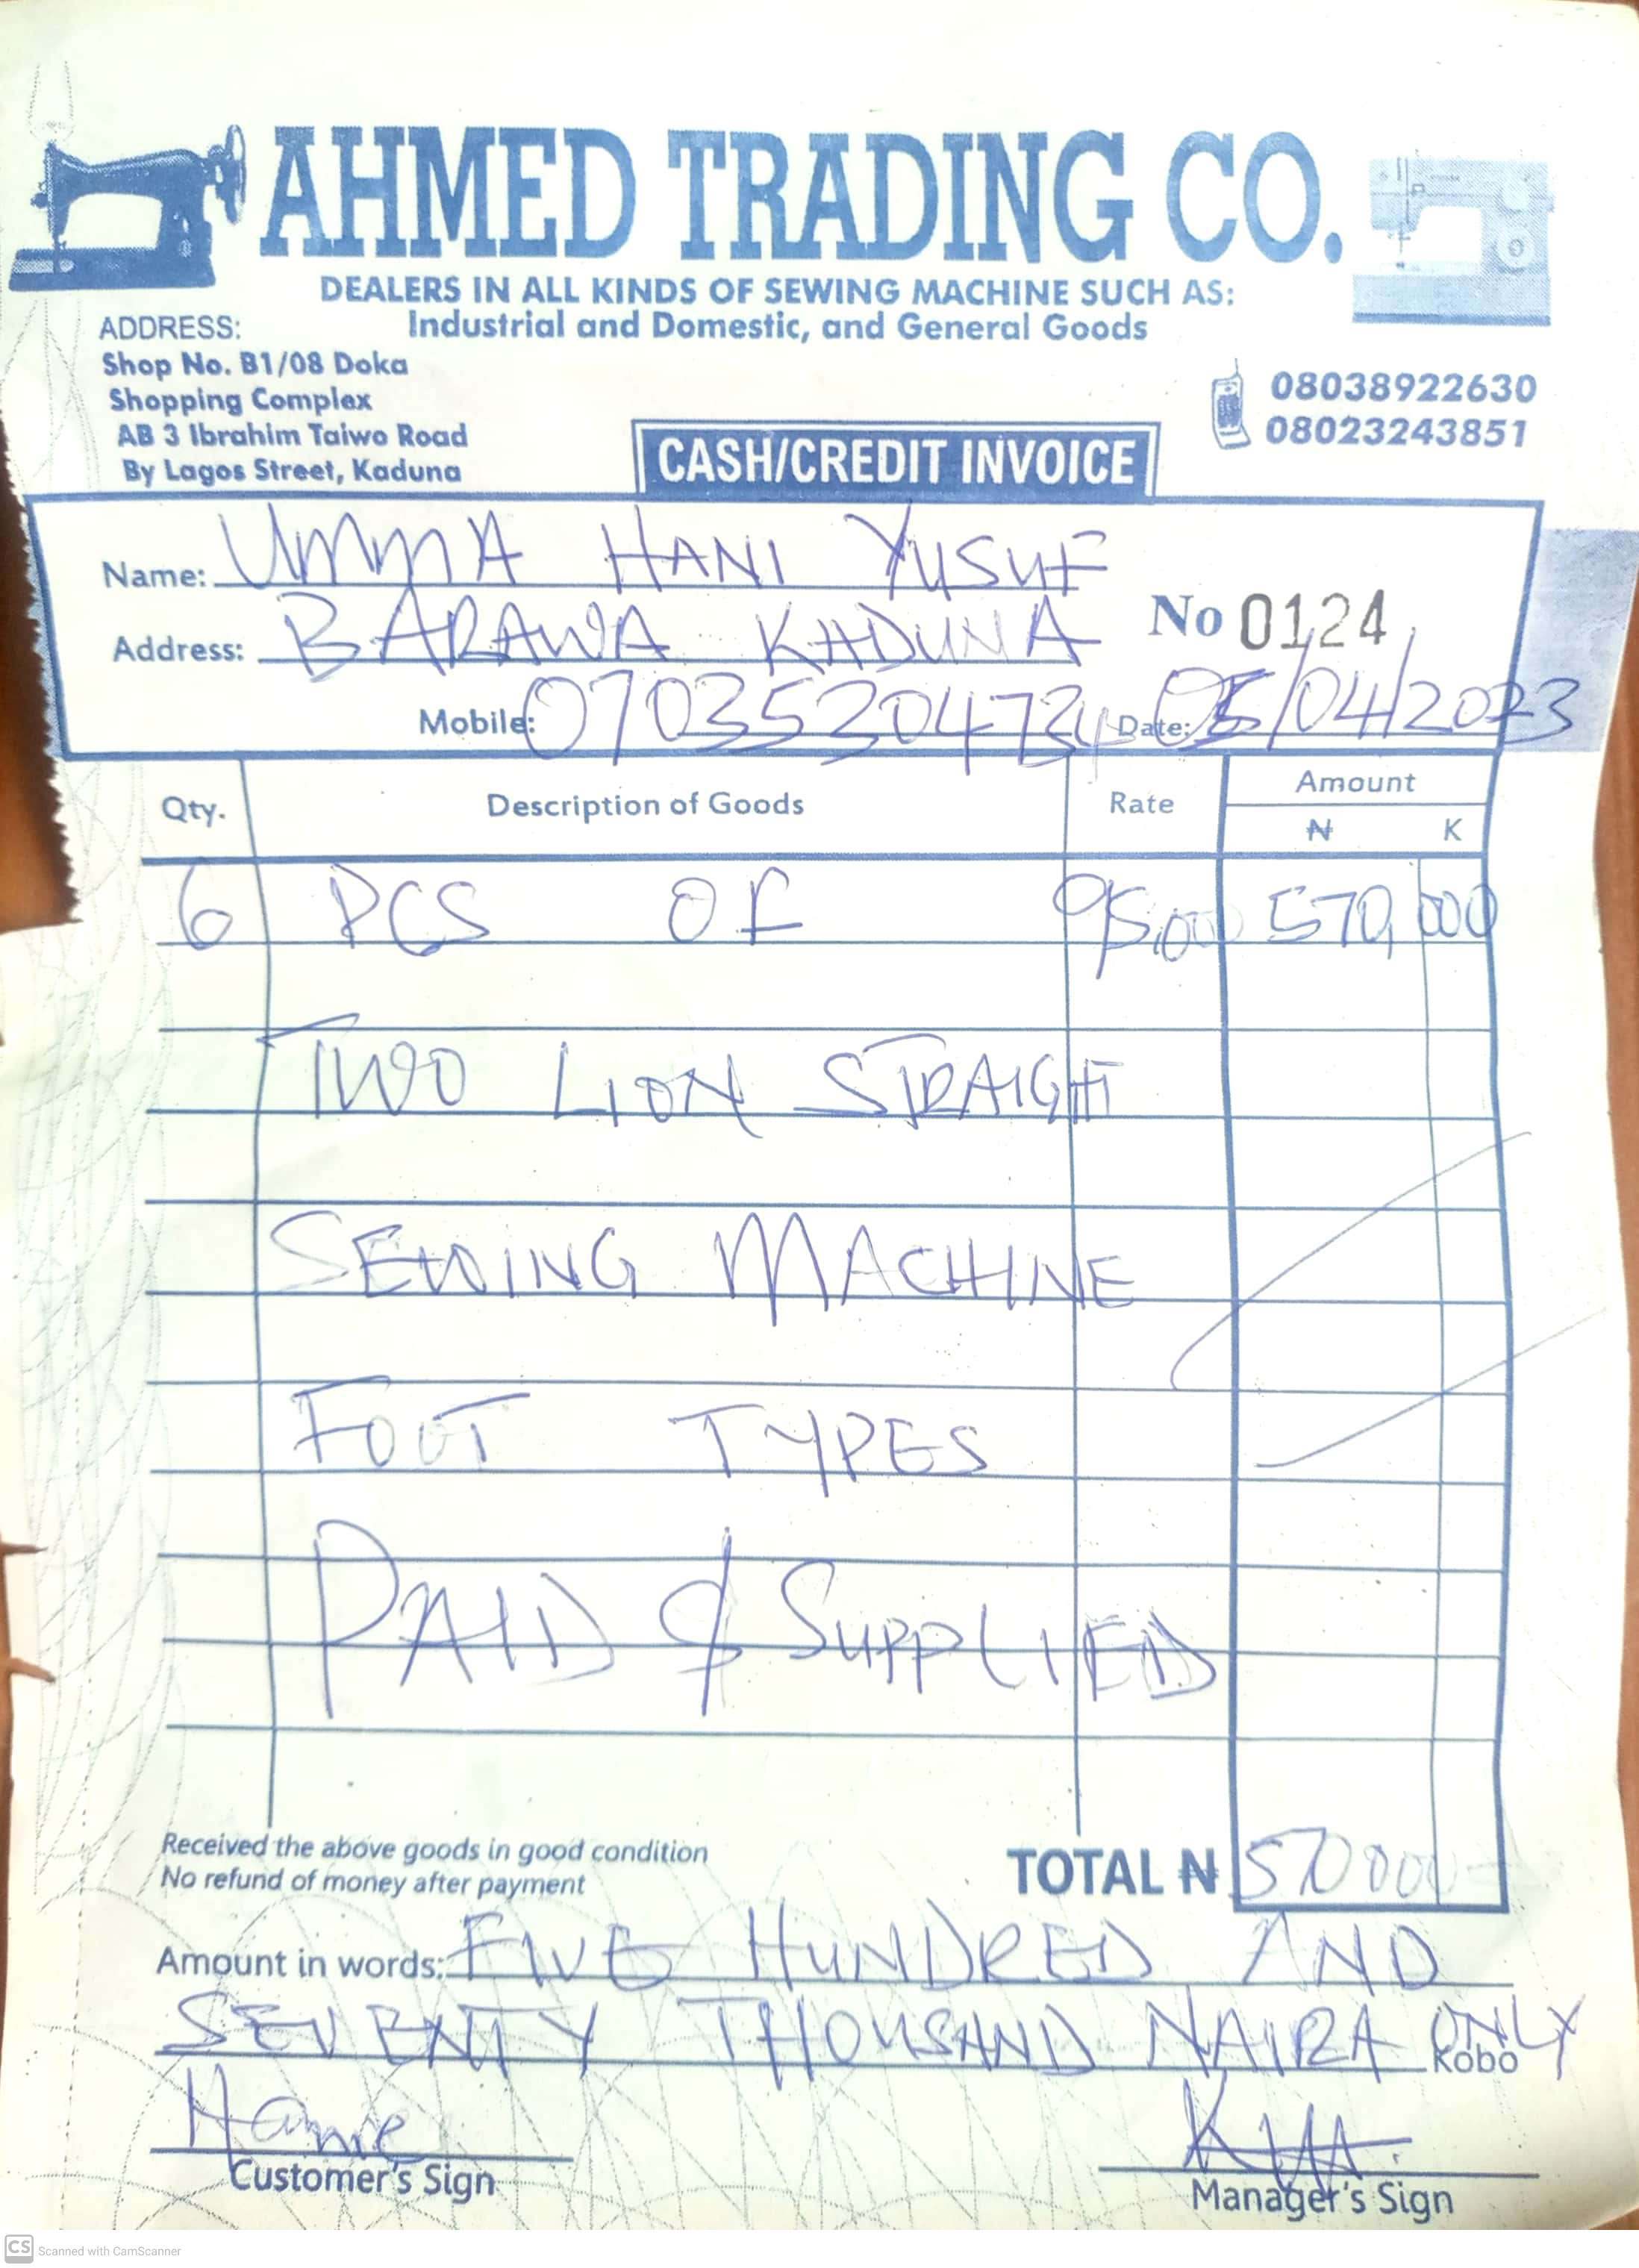 AHMED TRADING CO.
DEALERS IN ALL KINDS OF SEWING MACHINE SUCH AS:
Industrial and Domestic, and General Goods
ADDRESS:
Shop No. B1/08 Doka
Shopping Complex
AB 3 Ibrahim Taiwo Road
By Lagos Street, Kaduna
08038922630
08023243851
CASH/CREDIT INVOICE
Name: UMMA HANI YUSUF
Address: BARAWA KADUNA
No 0124
Mobile: Date: 05/04/2023
Qty. Description of Goods Rate Amount
₦ K
6 PCS OF 95,000 570,000
TWO LION STRAIGHT
SEWING MACHINE
FOOT TYPES
PAID & SUPPLIED
Received the above goods in good condition
No refund of money after payment
TOTAL ₦ 570000
Amount in words: FIVE HUNDRED AND
SEVENTY THOUSAND NAIRA ONLY
Kobo
Customer's Sign
Manager's Sign
CS Scanned with CamScanner